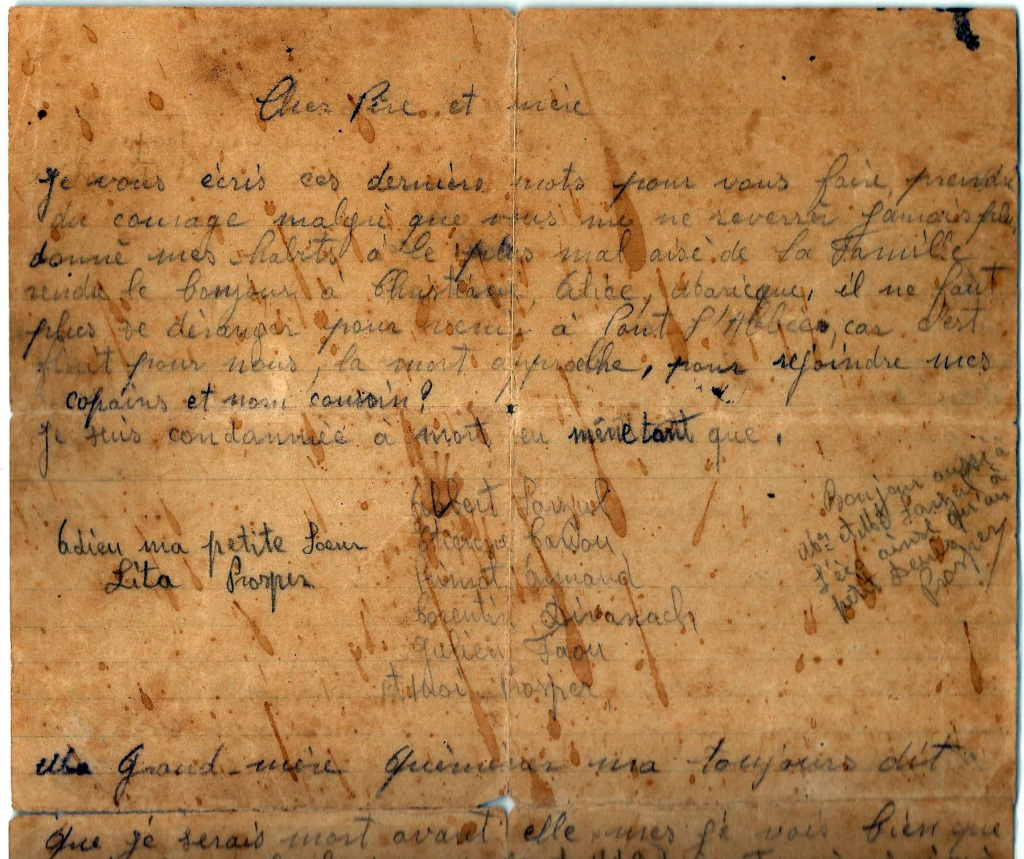 Cher Père et mère
Je vous écris ces derniers mots pour vous faire prendre
du courage malgré que vous me ne reverrer jamais plus,
donné mes habits à le plus mal aisé de la Famille
rendu le bonjour a Alice, il ne faut
plus se déranger pour à Pont l'Abbée, car c'est
finit pour nous, la mort approche, pour rejoindre mes
copains et nom coussin?
Je suis condannèe à mort en mêne tant que.
Albert
Bonjour aussi à
Mr et Mme
ainsi qu'au
petit
Prosper
Adieu ma petite Soeur
Lita Prosper
Armand
Corentin Divanach
Julien Faou
et moi Prosper
Ma Grand-mère Quéméner ma toujours dit
que je serais mort avant elle mes je vois bien que